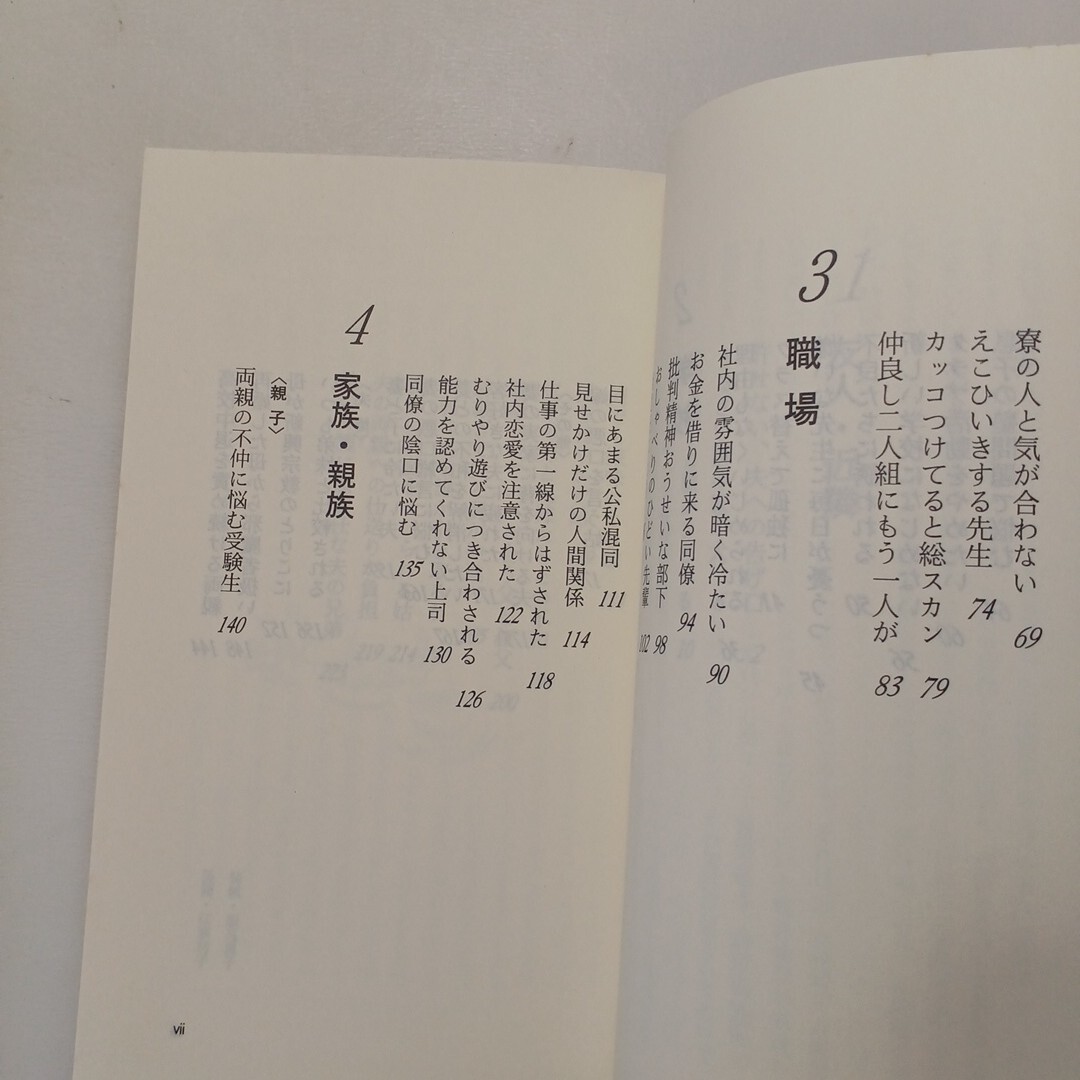 寮の人と気が合わない 69
えこひいきする先生 74
カッコつけてると総スカン 79
仲良し二人組にもう一人が 83
3 職場
社内の雰囲気が暗く冷たい 90
お金を借りに来る同僚 94
批判精神おうせいな部下 98
おしゃべりのひどい先輩 102
目にあまる公私混同 111
見せかけだけの人間関係 114
仕事の第一線からはずされた 118
社内恋愛を注意された 122
むりやり遊びにつき合わされる 126
能力を認めてくれない上司 130
同僚の陰口に悩む 135
4 家族・親族
〈親子〉
両親の不仲に悩む受験生 140
vii